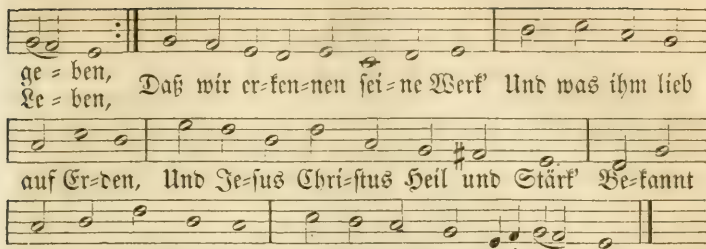 ge = ben,
Le = ben, Daß wir er=ken=nen ſei=ne Werk' Und was ihm lieb
auf Er=den, Und Je=ſus Chri=ſtus Heil und Stärk' Be=kannt